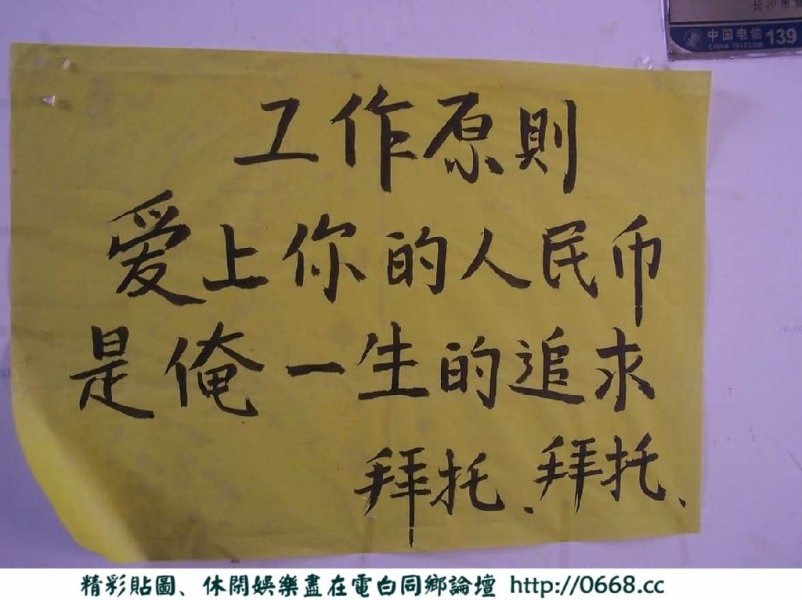 长沙市
中国电信 139
CHINA TELECOM
工作原則
爱上你的人民币
是俺一生的追求
拜托、拜托、
精彩貼圖、休閑娛樂盡在電白同鄉論壇 http://0668.cc